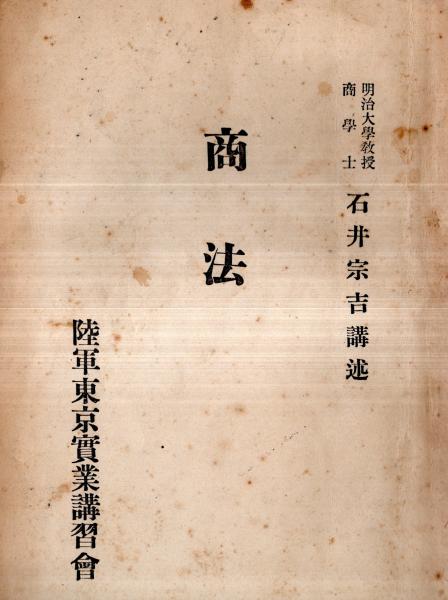 明治大學教授
商學士
石井宗吉講述
商法
陸軍東京實業講習會